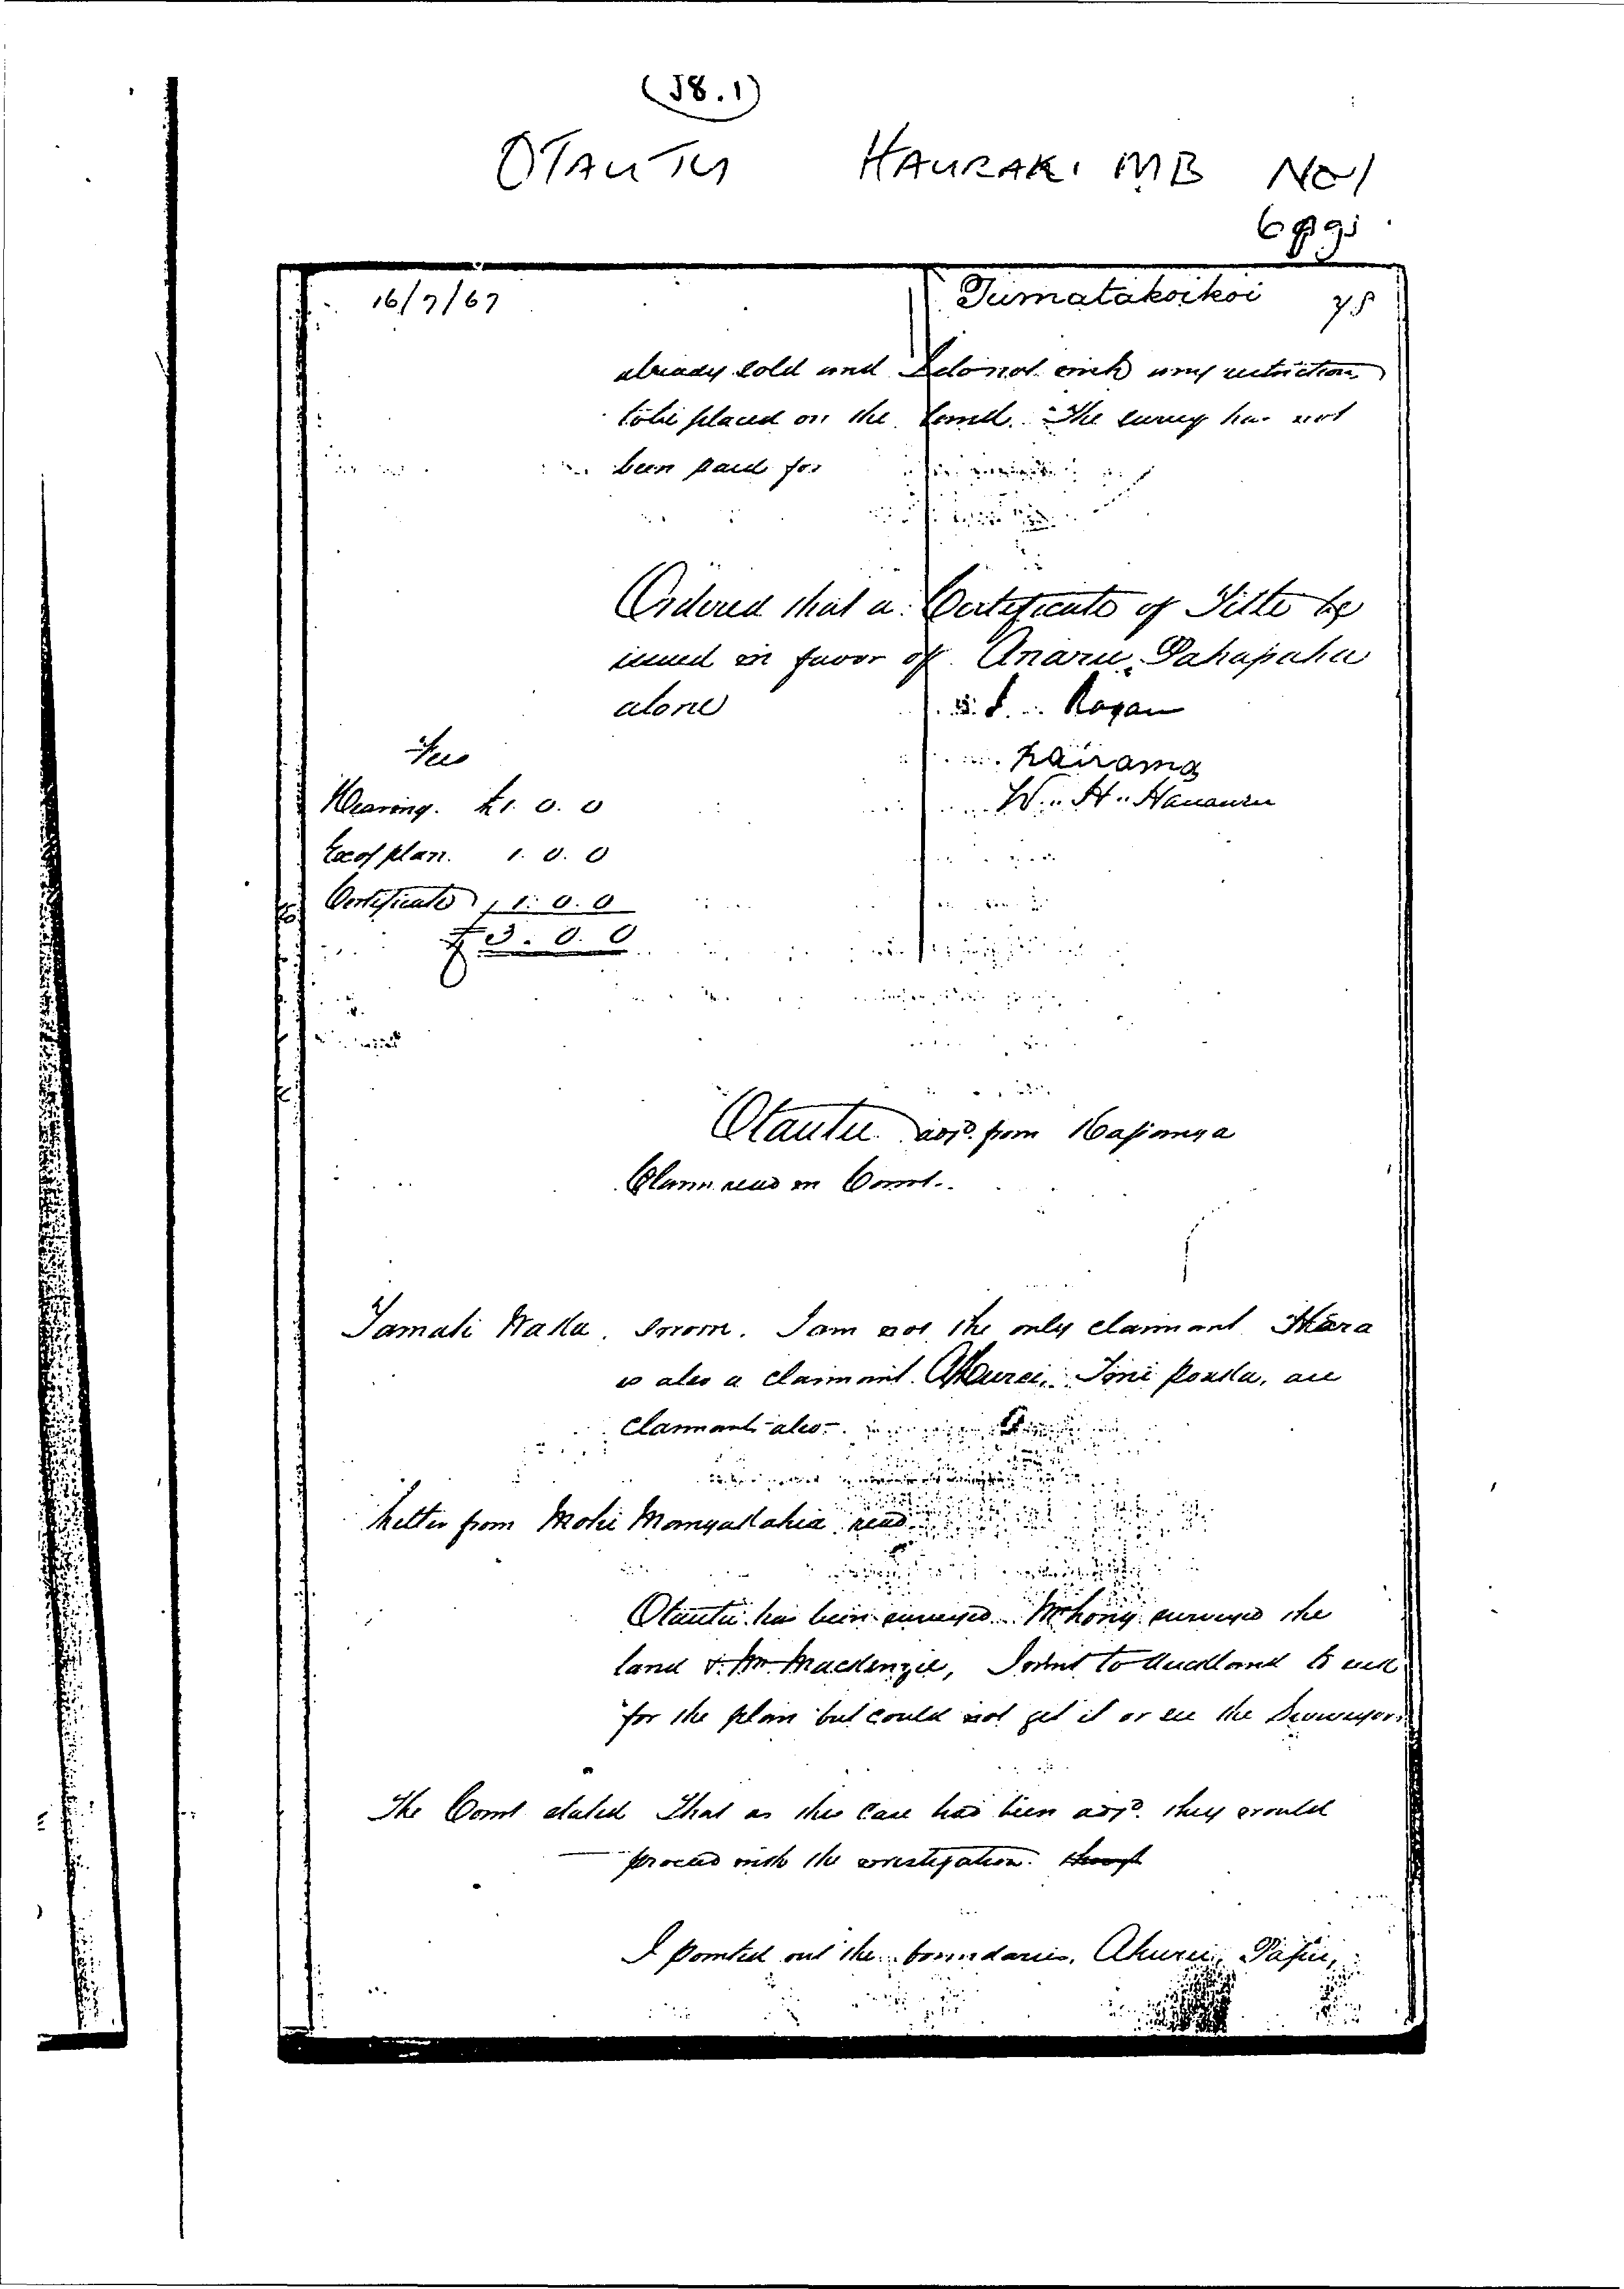 (J8.1)
OTAUTU HAURAKI MB No 1
6 pgs
16/7/67 Tumatakoikoi 75
already sold and I do not wish any restriction
to be placed on the land. The survey has not
been paid for
Ordered that a Certificate of Title be
issued in favor of Anaru Pahapaha
alone J. Rogan
Fees
Hearing. £1. 0. 0 W. H.
Ex of plan. 1. 0. 0
Certificate 1. 0. 0
£3. 0. 0
Otautu adjd. from Kapanga
Claim read in Court.
Tamati Waka. Sworn. I am not the only claimant Hera
is also a claimant. Akurei, are
claimants also.
Letter from Mohi Mangakahia read
Otautu has been surveyed. surveyed the
land & Mr. Mackenzie, I went to Auckland to ask
for the plan but could not get it or see the Surveyor.
The Court stated that as this case had been adjd. they would
proceed with the investigation. though
I pointed out the boundaries, Akurei,